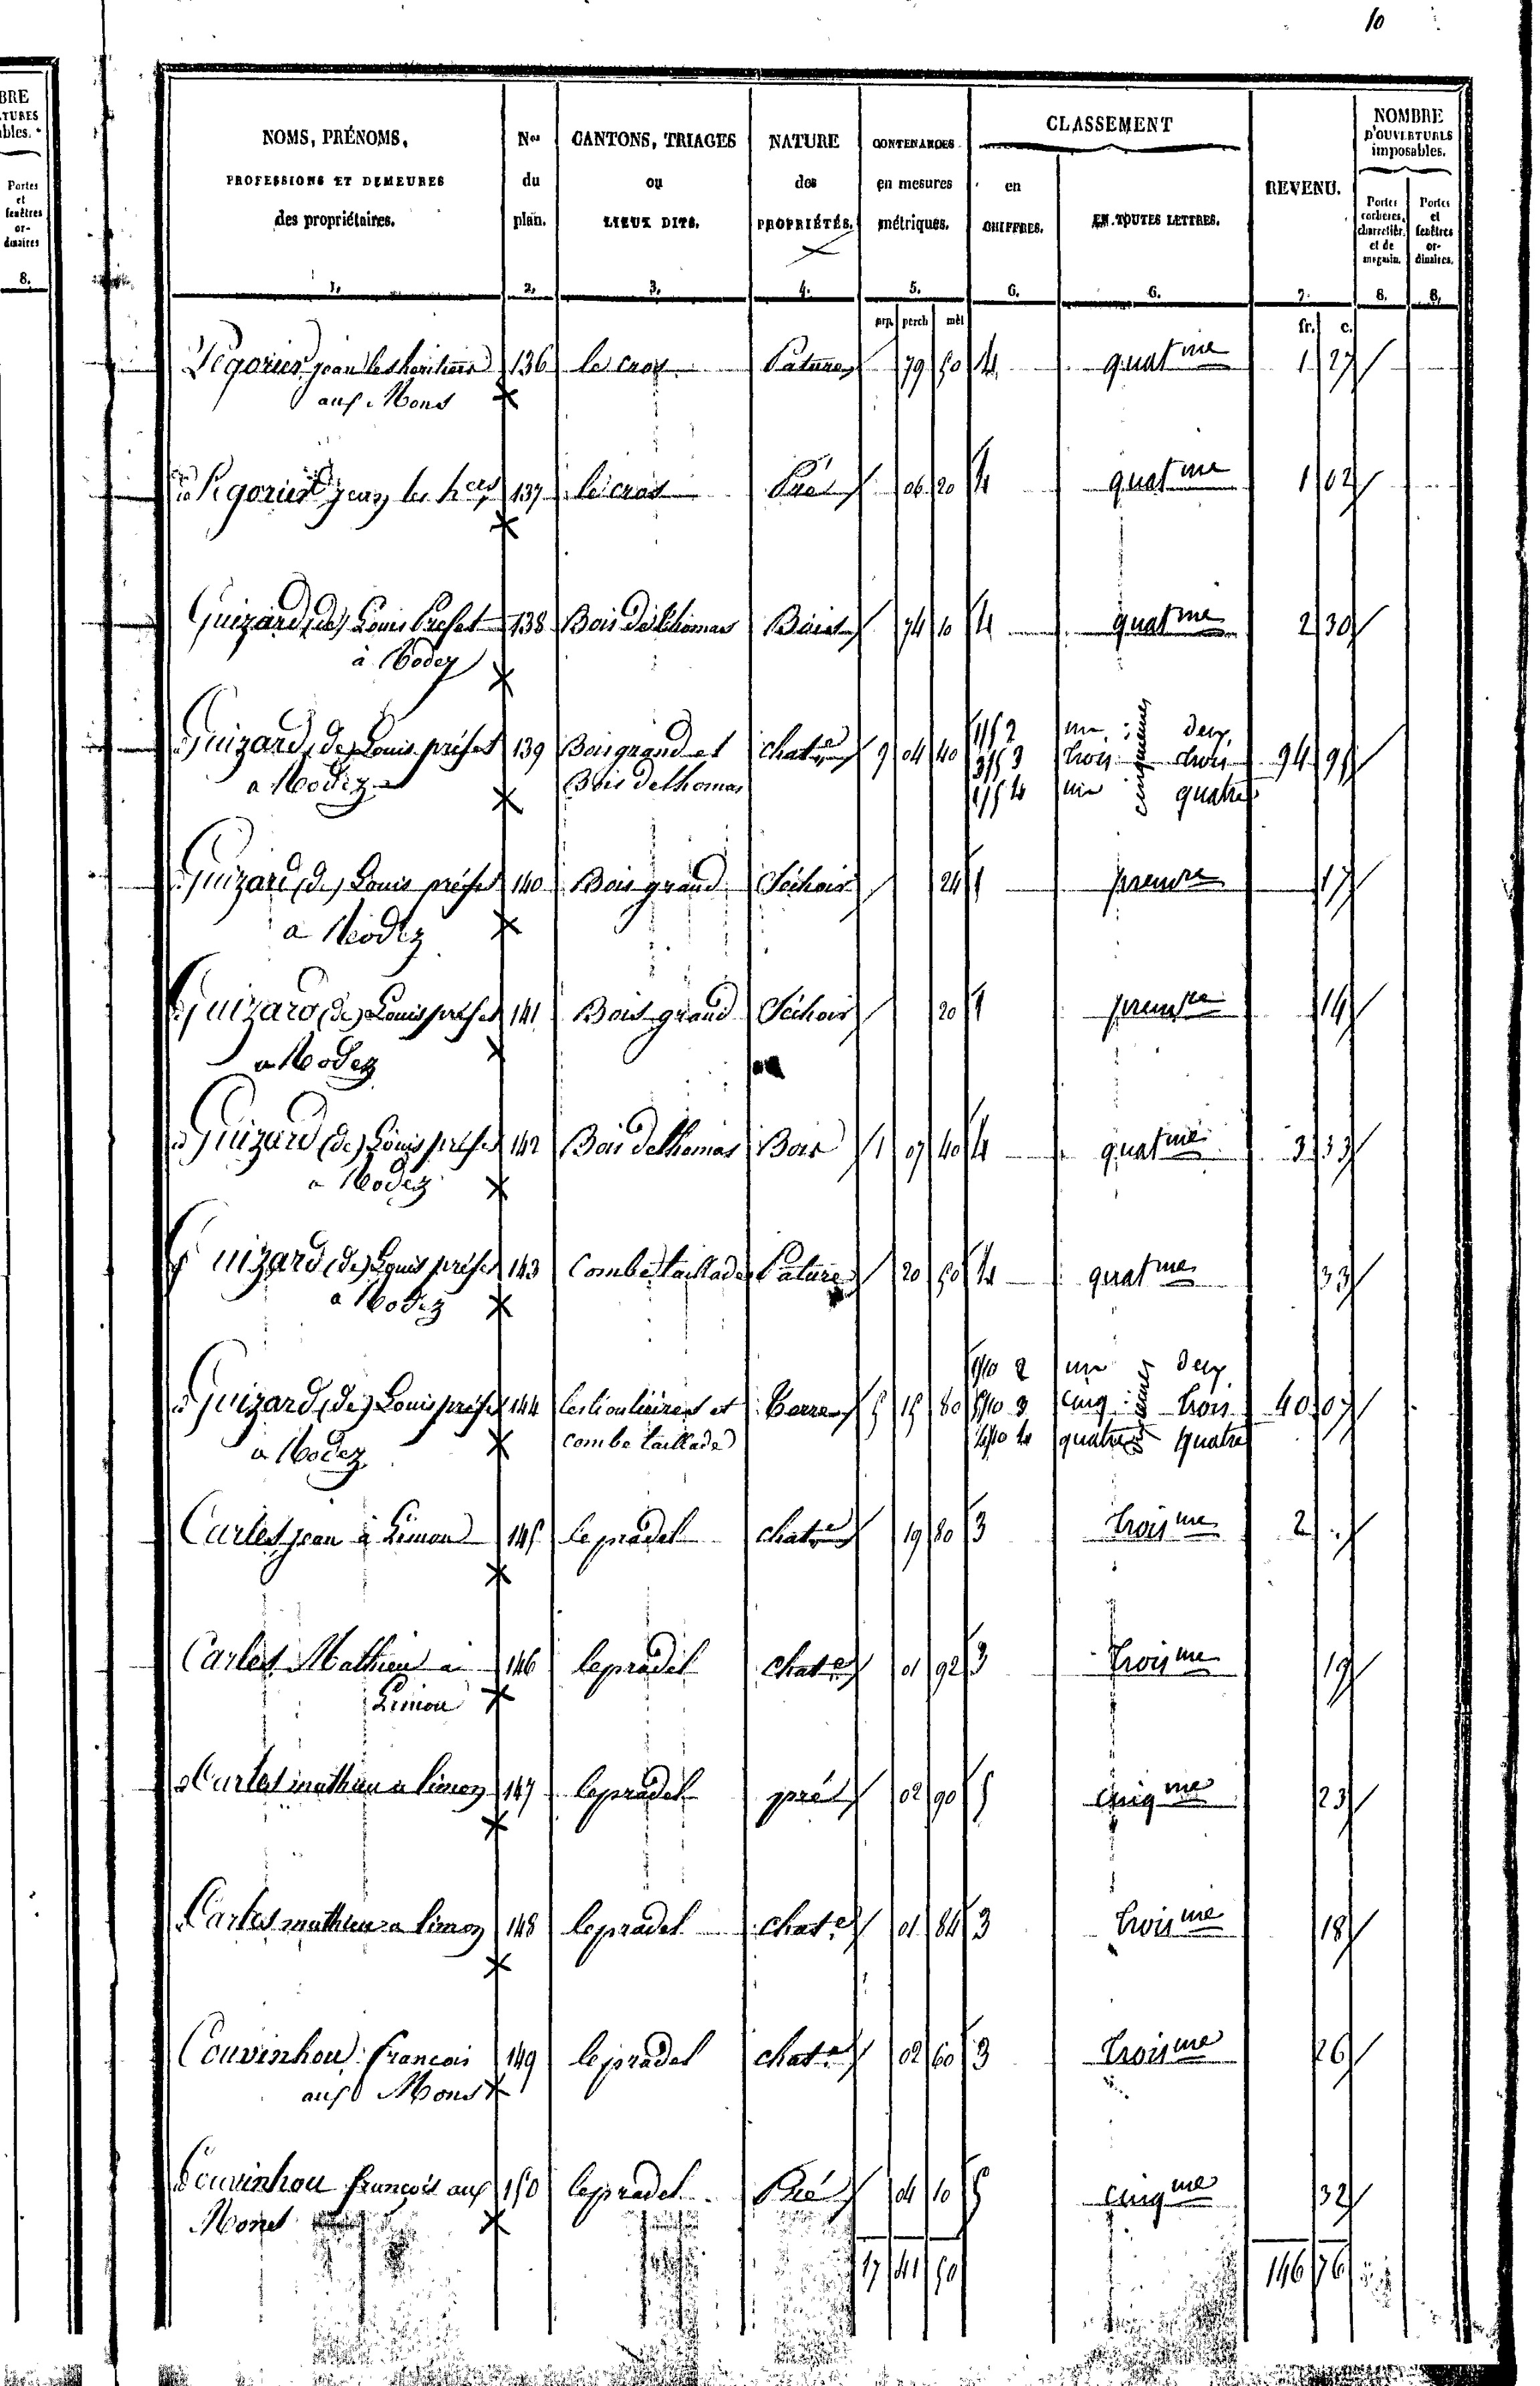 10
BRE
TURES
ables.
Portes
et
fenêtres
or-
dinaires
8.
NOMS, PRÉNOMS, PROFESSIONS ET DEMEURES des propriétaires. 1.
Nos du plan. 2.
CANTONS, TRIAGES ou LIEUX DITS. 3.
NATURE des PROPRIÉTÉS. 4.
CONTENANCES en mesures métriques. 5.
CLASSEMENT
en CHIFFRES. 6.
EN TOUTES LETTRES. 6.
REVENU. 7.
NOMBRE D'OUVERTURES imposables.
Portes cochères, charretièr. et de magasin. 8.
Portes et fenêtres ordinaires. 8.
arp. perch mèt fr. c.
Pégorier jean les héritiers 136 le cros Pature 79 50 4 quatme 1 27
aux Mons
Pégorier jean les hers 137 le cros Pré 06 20 4 quatme 1 02
Guizard (de) Louis Prefet 138 Bois delthomas Bois 74 10 4 quatme 2 30
à Rodez
Guizard (de) Louis préfet 139 Bois grand et chate 9 04 40 1/5 2 un deux 94 95
3/5 3 trois cinquièmes trois
a Rodez Bois delthomas 1/5 4 un quatre
Guizard (de) Louis préfet 140 Bois grand Séchoir 24 1 premre 17
a Rodez
Guizard (de) Louis préfet 141 Bois grand Séchoir 20 1 premre 14
a Rodez
Guizard (de) Louis préfet 142 Bois delthomas Bois 1 07 40 4 quatme 3 33
a Rodez
Guizard (de) Louis préfet 143 Combe taillade Pature 20 50 4 quatme 33
a Rodez
1/10 2 un deux
Guizard (de) Louis préfet 144 et Terre 5 15 80 5/10 3 cinq dixièmes trois 40 07
a Rodez combe taillade 4/10 4 quatre quatre
Carles jean à Limon 145 le pradel chate 19 80 3 troisme 2 .
Carles Mathieu a 146 le pradel chate 01 92 3 troisme 19
Limon
Carles mathieu a limon 147 le pradel pré 02 90 5 cinqme 23
Carles mathieu a limon 148 le pradel chate 01 84 3 troisme 18
Couvinhou francois 149 le pradel chate 02 60 3 troisme 26
aux Mons
Couvinhou francois aux 150 le pradel Pré 04 10 5 cinqme 32
Mons
17 41 50 146 76